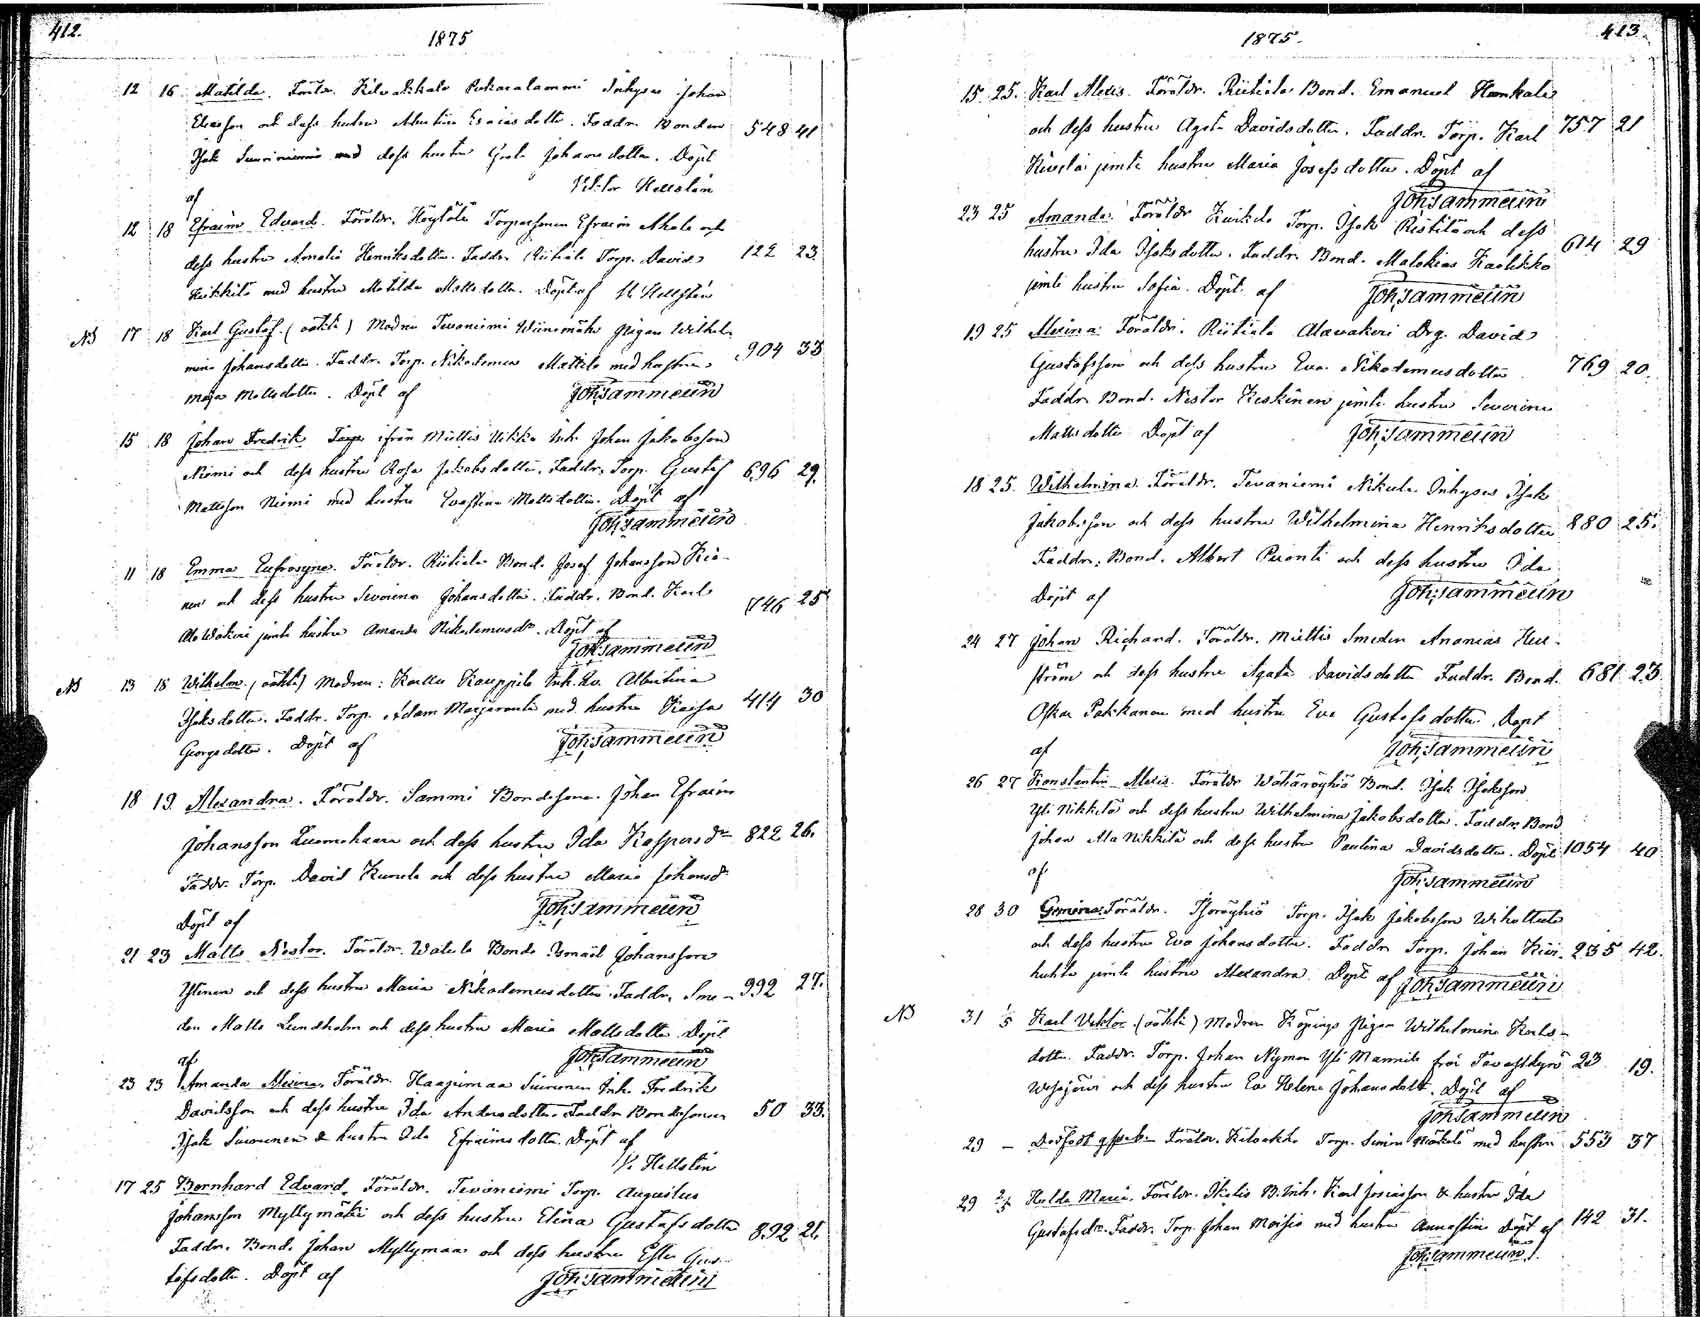 412.
1875
12 16 Matilda. Föräldr. Kilvakkala Inhyses Johan
Eliasson och dess hustru Albertina Esaiasdotter. Faddr. Bonden 548 41
Isak Suoriniemi med dess hustru Greta Johansdotter. Döpt
af Viktor Hellstén
12 18 Efraim Edvard. Föräldr. Höytölä Torparsonen Efraim och
dess hustru Amalia Henriksdotter. Faddr. Riitiala Torp. David 122 23
med hustru Matilda Mattsdotter. Döpt af V. Hellstén
NB 17 18 Karl Gustaf. (oäkta) Modren Tevaniemi Pigan Wilhel-
mina Johansdotter. Faddr. Torp. Nikodemus Mattila med hustru 904 33
Maja Mattsdotter. Döpt af Joh. Sammelin
15 18 Johan Fredrik ifrån Miettis Inh. Johan Jakobsson
Niemi och dess hustru Rosa Jakobsdotter. Faddr. Torp. Gustaf 696 29.
Mattsson Niemi med hustru Evastina Mattsdotter. Döpt af
Joh. Sammelin
11 18 Emma Eufrosyne. Föräldr. Riitiala Bond. Josef Johansson
och dess hustru Severina Johansdotter. Faddr. Bond. Karl 746 25
Ala Wakeri jemte hustru Amanda Nikodemusdr. Döpt af
Joh. Sammelin
NB 13 18 Wilhelm. (oäkta) Modren: Kauppila Inh. Albertina
Isaksdotter. Faddr. Torp. Adam med hustru Kaisa 414 30
Georgsdotter. Döpt af Joh. Sammelin
18 19. Alexandra. Föräldr. Sammi Bondesonen Johan Efraim
Johansson och dess hustru Ida Kaspersdr 822 26.
Faddr. Torp. David och dess hustru Maria Johansd.
Döpt af Joh. Sammelin
21 23 Matts Nestor. Föräldr. Watula Bonde Ismael Johansson
Ylinen och dess hustru Maria Nikodemusdotter. Faddr. Sme- 992 27.
den Matts Lundholm och dess hustru Maria Mattsdotter. Döpt
af Joh. Sammelin
23 23 Amanda Alexina. Föräldr. Haapimaa Suurinen Inh. Fredrik
Davidsson och dess hustru Ida Andersdotter. Faddr. Bondesonen 50 33.
Isak Suurinen & hustru Ida Efraimsdotter. Döpt af
V. Hellstén
17 25 Bernhard Edvard. Föräldr. Tevaniemi Torp. Augustus
Johansson Myllymäki och dess hustru Elina Gustafsdotter 892 21.
Faddr. Bond. Johan Myllymaa och dess hustru Ester Gus-
tafsdotter. Döpt af Joh. Sammelin
413.
1875.
15 25. Karl Alexis. Föräldr. Riitiala Bond. Emanuel Honkala
och dess hustru Agata Davidsdotter. Faddr. Torp. Karl 757 21
Kivelä jemte hustru Maria Josefsdotter. Döpt af
Joh. Sammelin
23 25 Amanda. Föräldr. Torp. Isak Ristilä och dess
hustru Ida Isaksdotter. Faddr. Bond. Malakias 614 29
jemte hustru Sofia. Döpt af Joh. Sammelin
19 25 Alexina. Föräldr. Riitiala Alawakeri Drg. David
Gustafsson och dess hustru Eva Nikodemusdotter 769 20.
Faddr. Bond. Nestor Keskinen jemte hustru Severina
Mattsdotter Döpt af Joh. Sammelin
18 25. Wilhelmina. Föräldr. Tevaniemi Nikula Inhyses Isak
Jakobsson och dess hustru Wilhelmina Henriksdotter 880 25.
Faddr. Bond. Albert och dess hustru Ida
Döpt af Joh. Sammelin
24 27 Johan Richard. Föräldr. Miettis Smeden Ananias
ström och dess hustru Agata Davidsdotter Faddr. Bond. 681 23.
Oskar Pakkanen med hustru Eva Gustafsdotter. Döpt
af Joh. Sammelin
26 27 Konstantin Alexis. Föräldr. Wähäröyhiö Bond. Isak Isaksson
Yli Nikkilä och dess hustru Wilhelmina Jakobsdotter. Faddr. Bond
Johan Ala Nikkilä och dess hustru Paulina Davidsdotter. Döpt 1054 40
af Joh. Sammelin
28 30 Föräldr. Isoröyhiö Torp. Isak Jakobsson
och dess hustru Eva Johansdotter. Faddr. Torp. Johan Kivi- 235 42.
huhta jemte hustru Alexandra. Döpt af Joh. Sammelin
NB 31 1/5 Karl Viktor (oäkta) Modren Köpings Pigan Wilhelmina Karls-
dotter. Faddr. Torp. Johan Nyman Yli Mannila från Tavastkyrö 23 19.
och dess hustru Eva Helena Johansdott. Döpt af
Joh. Sammelin
29 — Dödfödt gossebarn Föräldr. Kilvakkala Torp. med hustru 553 37
29 2/5 Hulda Maria. Föräldr. Inh. Karl Josiasson & hustru Ida
Gustafsdr. Faddr. Torp. Johan Moisio med hustru Annastina Döpt af 142 31.
Joh. Sammelin.